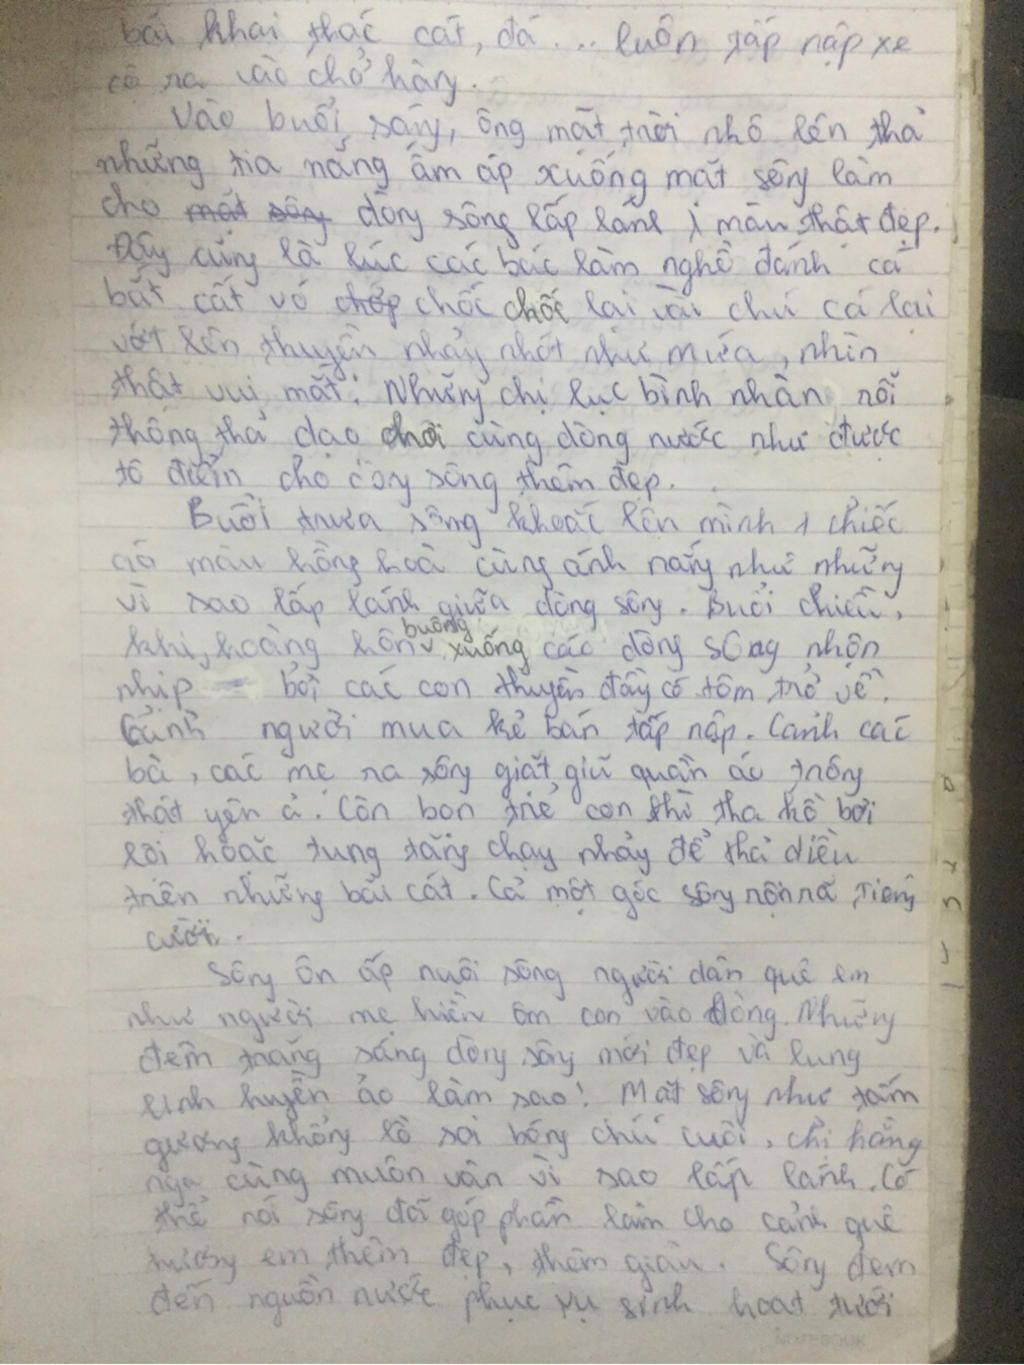 bãi khai thác cát, đá... luôn tấp nập xe
cộ ra vào chở hàng.
Vào buổi sáng, ông mặt trời nhô lên thả
những tia nắng ấm áp xuống mặt sông làm
cho mặt sông dòng sông lấp lánh 1 màu thật đẹp.
Đây cũng là lúc các bác làm nghề đánh cá
bắt cất vó chốc chốc lại vài chú cá lại
vớt lên thuyền nhảy nhót như múa, nhìn
thật vui mắt. Những chị lục bình nhàn rỗi
thông thả dạo chơi cùng dòng nước như được
tô điểm cho dòng sông thêm đẹp.
Buổi trưa sông khoác lên mình 1 chiếc
áo màu hồng hoà cùng ánh nắng như những
vì sao lấp lánh giữa dòng sông. Buổi chiều,
khi hoàng hôn buông xuống các dòng sông nhộn
nhịp bởi các con thuyền đầy có tôm trở về.
Cảnh người mua kẻ bán tấp nập. Cảnh các
bà, các mẹ ra sông giặt giũ quần áo trông
thật yên ả. Còn bọn trẻ con thì tha hồ bơi
lội hoặc tung tăng chạy nhảy để thả diều
trên những bãi cát. Cả một góc sông rộn rã tiếng
cười.
Sông ôn ấp nuôi sống người dân quê em
như người mẹ hiền ôm con vào lòng. Những
đêm trăng sáng dòng sông mới đẹp và lung
linh huyền ảo làm sao! Mặt sông như tấm
gương khổng lồ soi bóng chú cuội, chị hằng
nga cùng muôn vàn vì sao lấp lánh. Có
thể nói sông đã góp phần làm cho cảnh quê
hương em thêm đẹp, thêm giàu. Sông đem
đến nguồn nước phục vụ sinh hoạt tưới